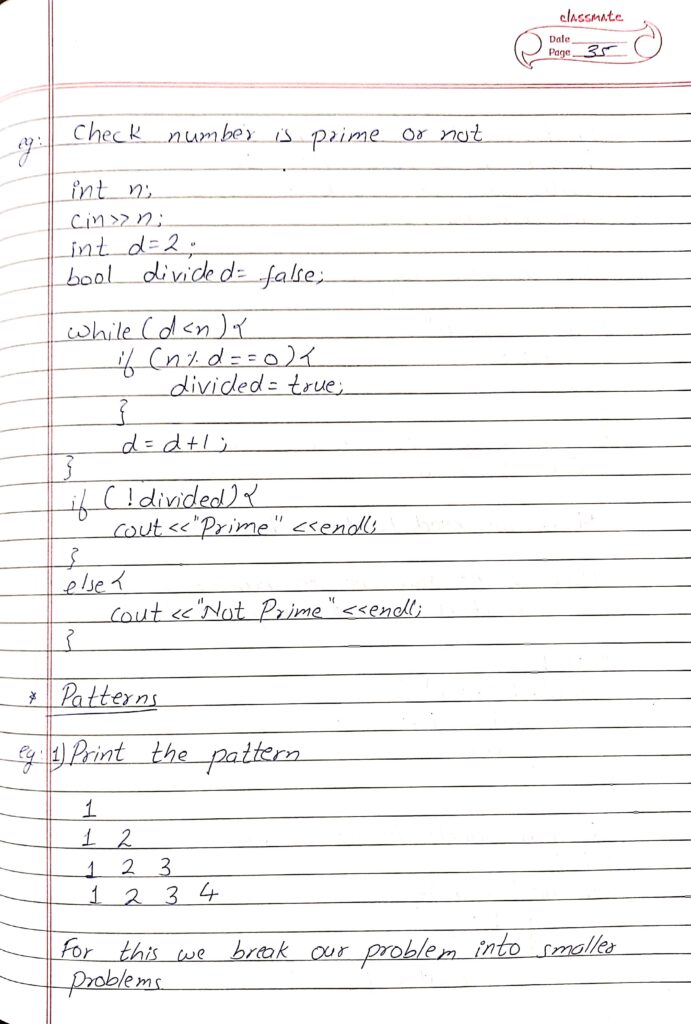 classmate
Date
Page 35
eg: Check number is prime or not
int n;
cin>>n;
int d=2;
bool divided= false;
while (d<n){
if (n% d==0){
divided= true;
}
d= d+1;
}
if (!divided){
cout<<"Prime" <<endl;
}
else{
cout<<"Not Prime"<<endl;
}
* Patterns
eg: 1) Print the pattern
1
1 2
1 2 3
1 2 3 4
For this we break our problem into smaller
problems.